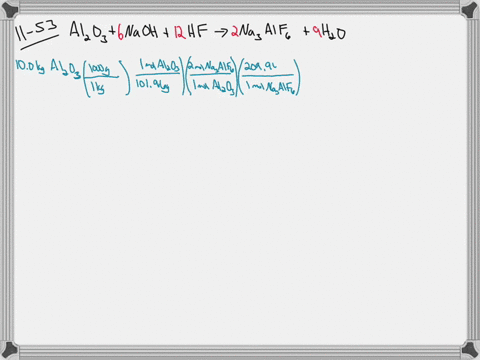 11-53 Al₂O₃ + 6NaOH + 12HF → 2Na₃AlF₆ + 9H₂O
10.0 kg Al₂O₃ (1000g / 1kg) (1 mol Al₂O₃ / 101.96g) (2 mol Na₃AlF₆ / 1 mol Al₂O₃) (209.94 / 1 mol Na₃AlF₆)